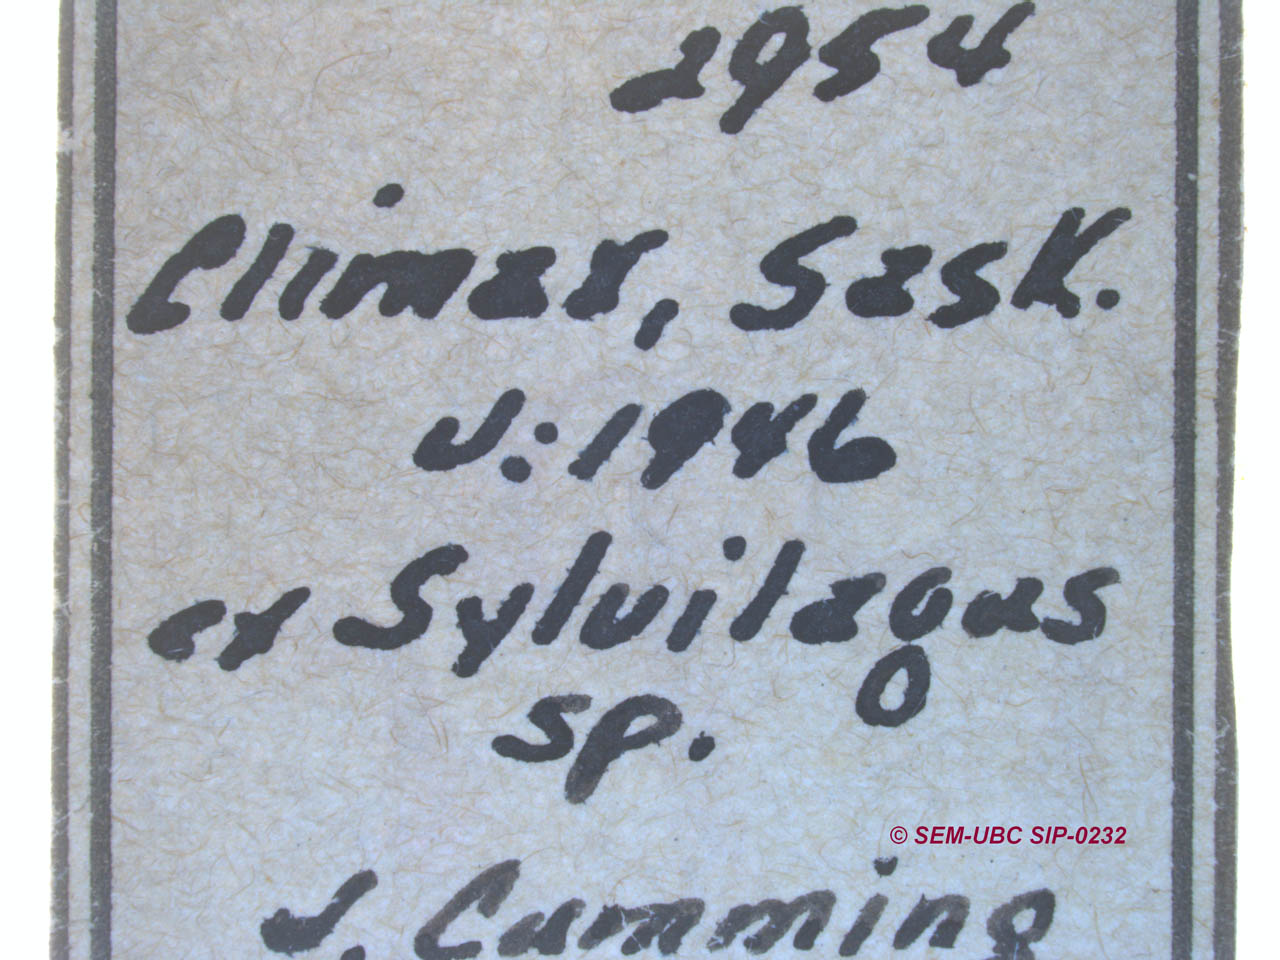 2954
Climax, Sask.
J:1946
ex Sylvilagus
sp.
© SEM-UBC SIP-0232
J. Cumming